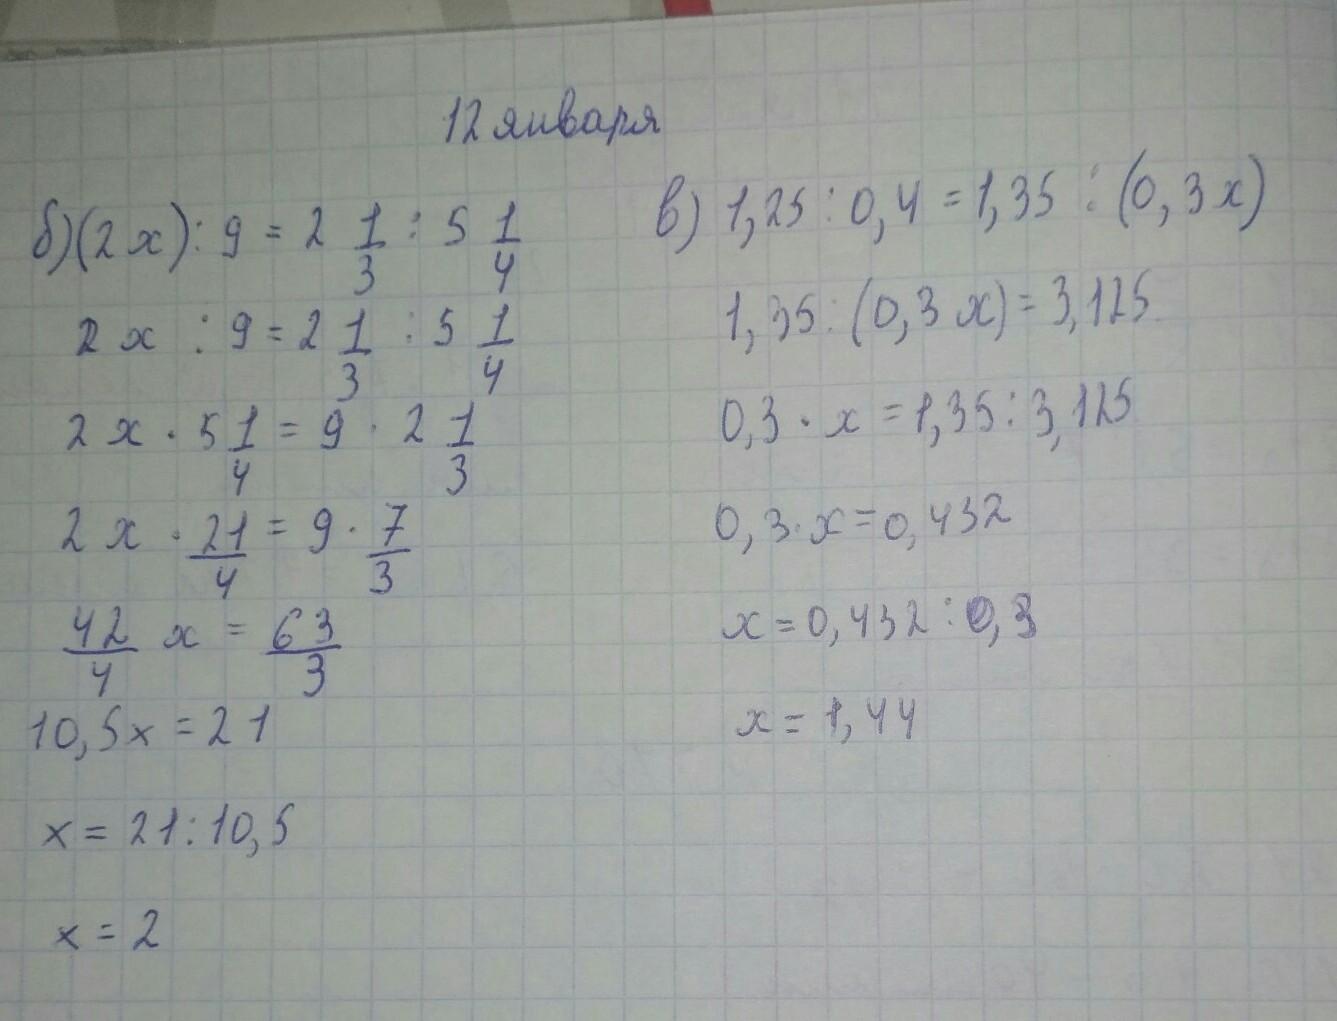 12 января
б) (2x) : 9 = 2 1/3 : 5 1/4
2x : 9 = 2 1/3 : 5 1/4
2x · 5 1/4 = 9 · 2 1/3
2x · 21/4 = 9 · 7/3
42/4 x = 63/3
10,5x = 21
x = 21 : 10,5
x = 2
в) 1,25 : 0,4 = 1,35 : (0,3x)
1,35 : (0,3x) = 3,125
0,3 · x = 1,35 : 3,125
0,3 · x = 0,432
x = 0,432 : 0,3
x = 1,44